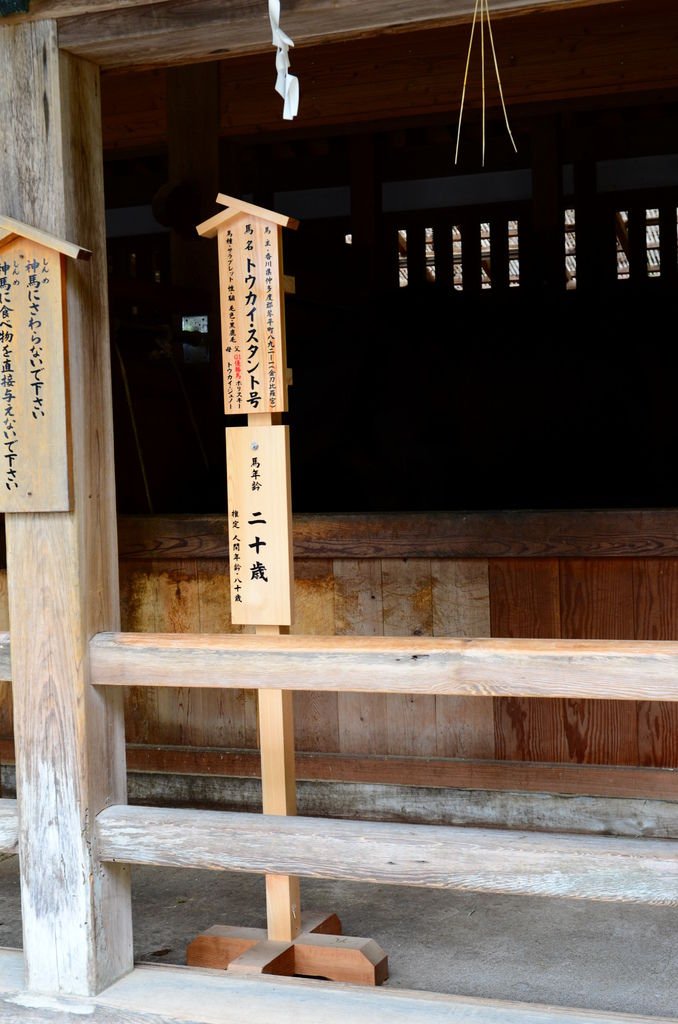 馬 主・香川県仲多度郡琴平町八九二ー一(金刀比羅宮)
馬 名 トウカイ・スタント号
馬種・サラブレット 性・騸 毛色・黒鹿毛 父 G1優勝馬 ホリスキー
母 トウカイ・ジュノー
馬年齢
二十歳
推定 人間年齢・八十歳
神馬にさわらないで下さい
しんめ
神馬に食べ物を直接与えないで下さい
しんめ